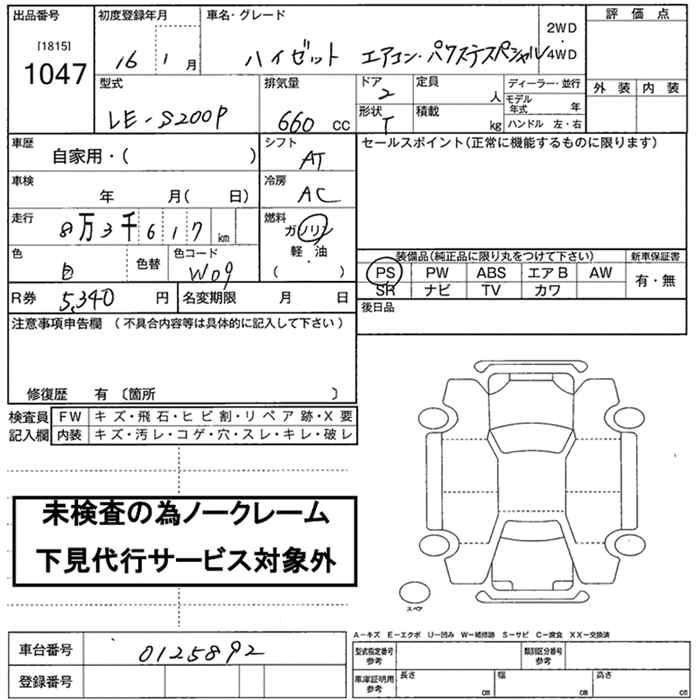 出品番号
[1815]
1047
初度登録年月
16 1 月
車名・グレード
ハイゼット エアコン・パワステスペシャル
2WD
・
4WD
評価点
外装 内装
型式
LE-S200P
排気量
660 CC
ドア
2
形状
T
定員
人
積載
kg
ディーラー・並行
モデル
年式 年
ハンドル 左・右
車歴
自家用・( )
シフト
AT
セールスポイント(正常に機能するものに限ります)
車検
年 月( 日)
冷房
AC
走行
8万3千617 km
燃料
ガソリン
軽・油
( ・ )
色
白
色替
色コード
W09
R券 5,340 円
名変期限 月 日
装備品(純正品に限り丸をつけて下さい)
PS PW ABS エアB AW
SR ナビ TV カワ
新車保証書
有・無
後日品
注意事項申告欄 (不具合内容等は具体的に記入して下さい)
修復歴 有 〔箇所 〕
検査員
記入欄
FW キズ・飛石・ヒビ割・リペア跡・X要
内装 キズ・汚レ・コゲ・穴・スレ・キレ・破レ
未検査の為ノークレーム
下見代行サービス対象外
スペア
A-キズ E-エクボ U-凹み W-補修跡 S-サビ C-腐食 XX-交換済
車台番号 0125892
登録番号
型式指定番号
参考
類別区分番号
参考
車庫証明用
参考
長さ cm
幅 cm
高さ cm